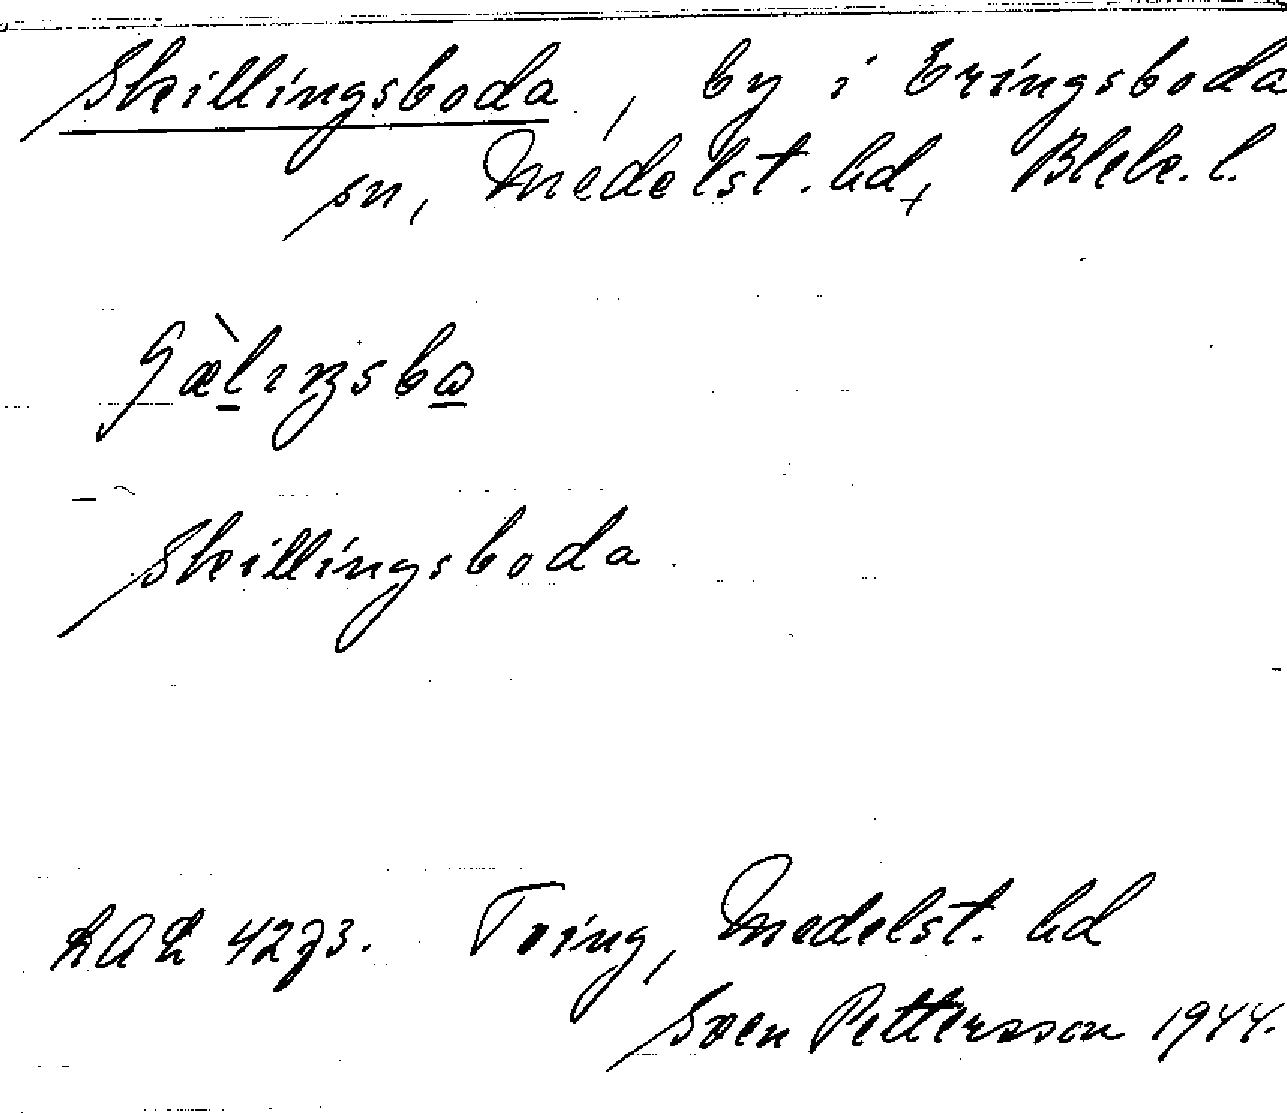 Skillingsboda, by i Eringsboda
sn, Medelst. hd, Blek. l.
Skillingsboda
4273. Tving, Medelst. hd
Sven Pettersson 1944.